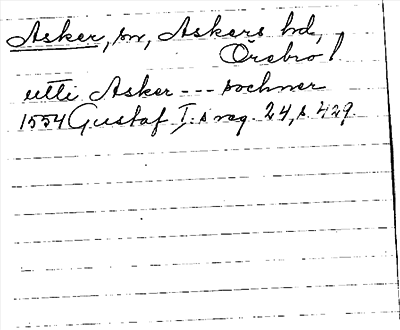 Asker, sn, Askers hd,
Örebro l
utti Asker --- sochner
1554 Gustaf I:s reg. 24, s. 429.